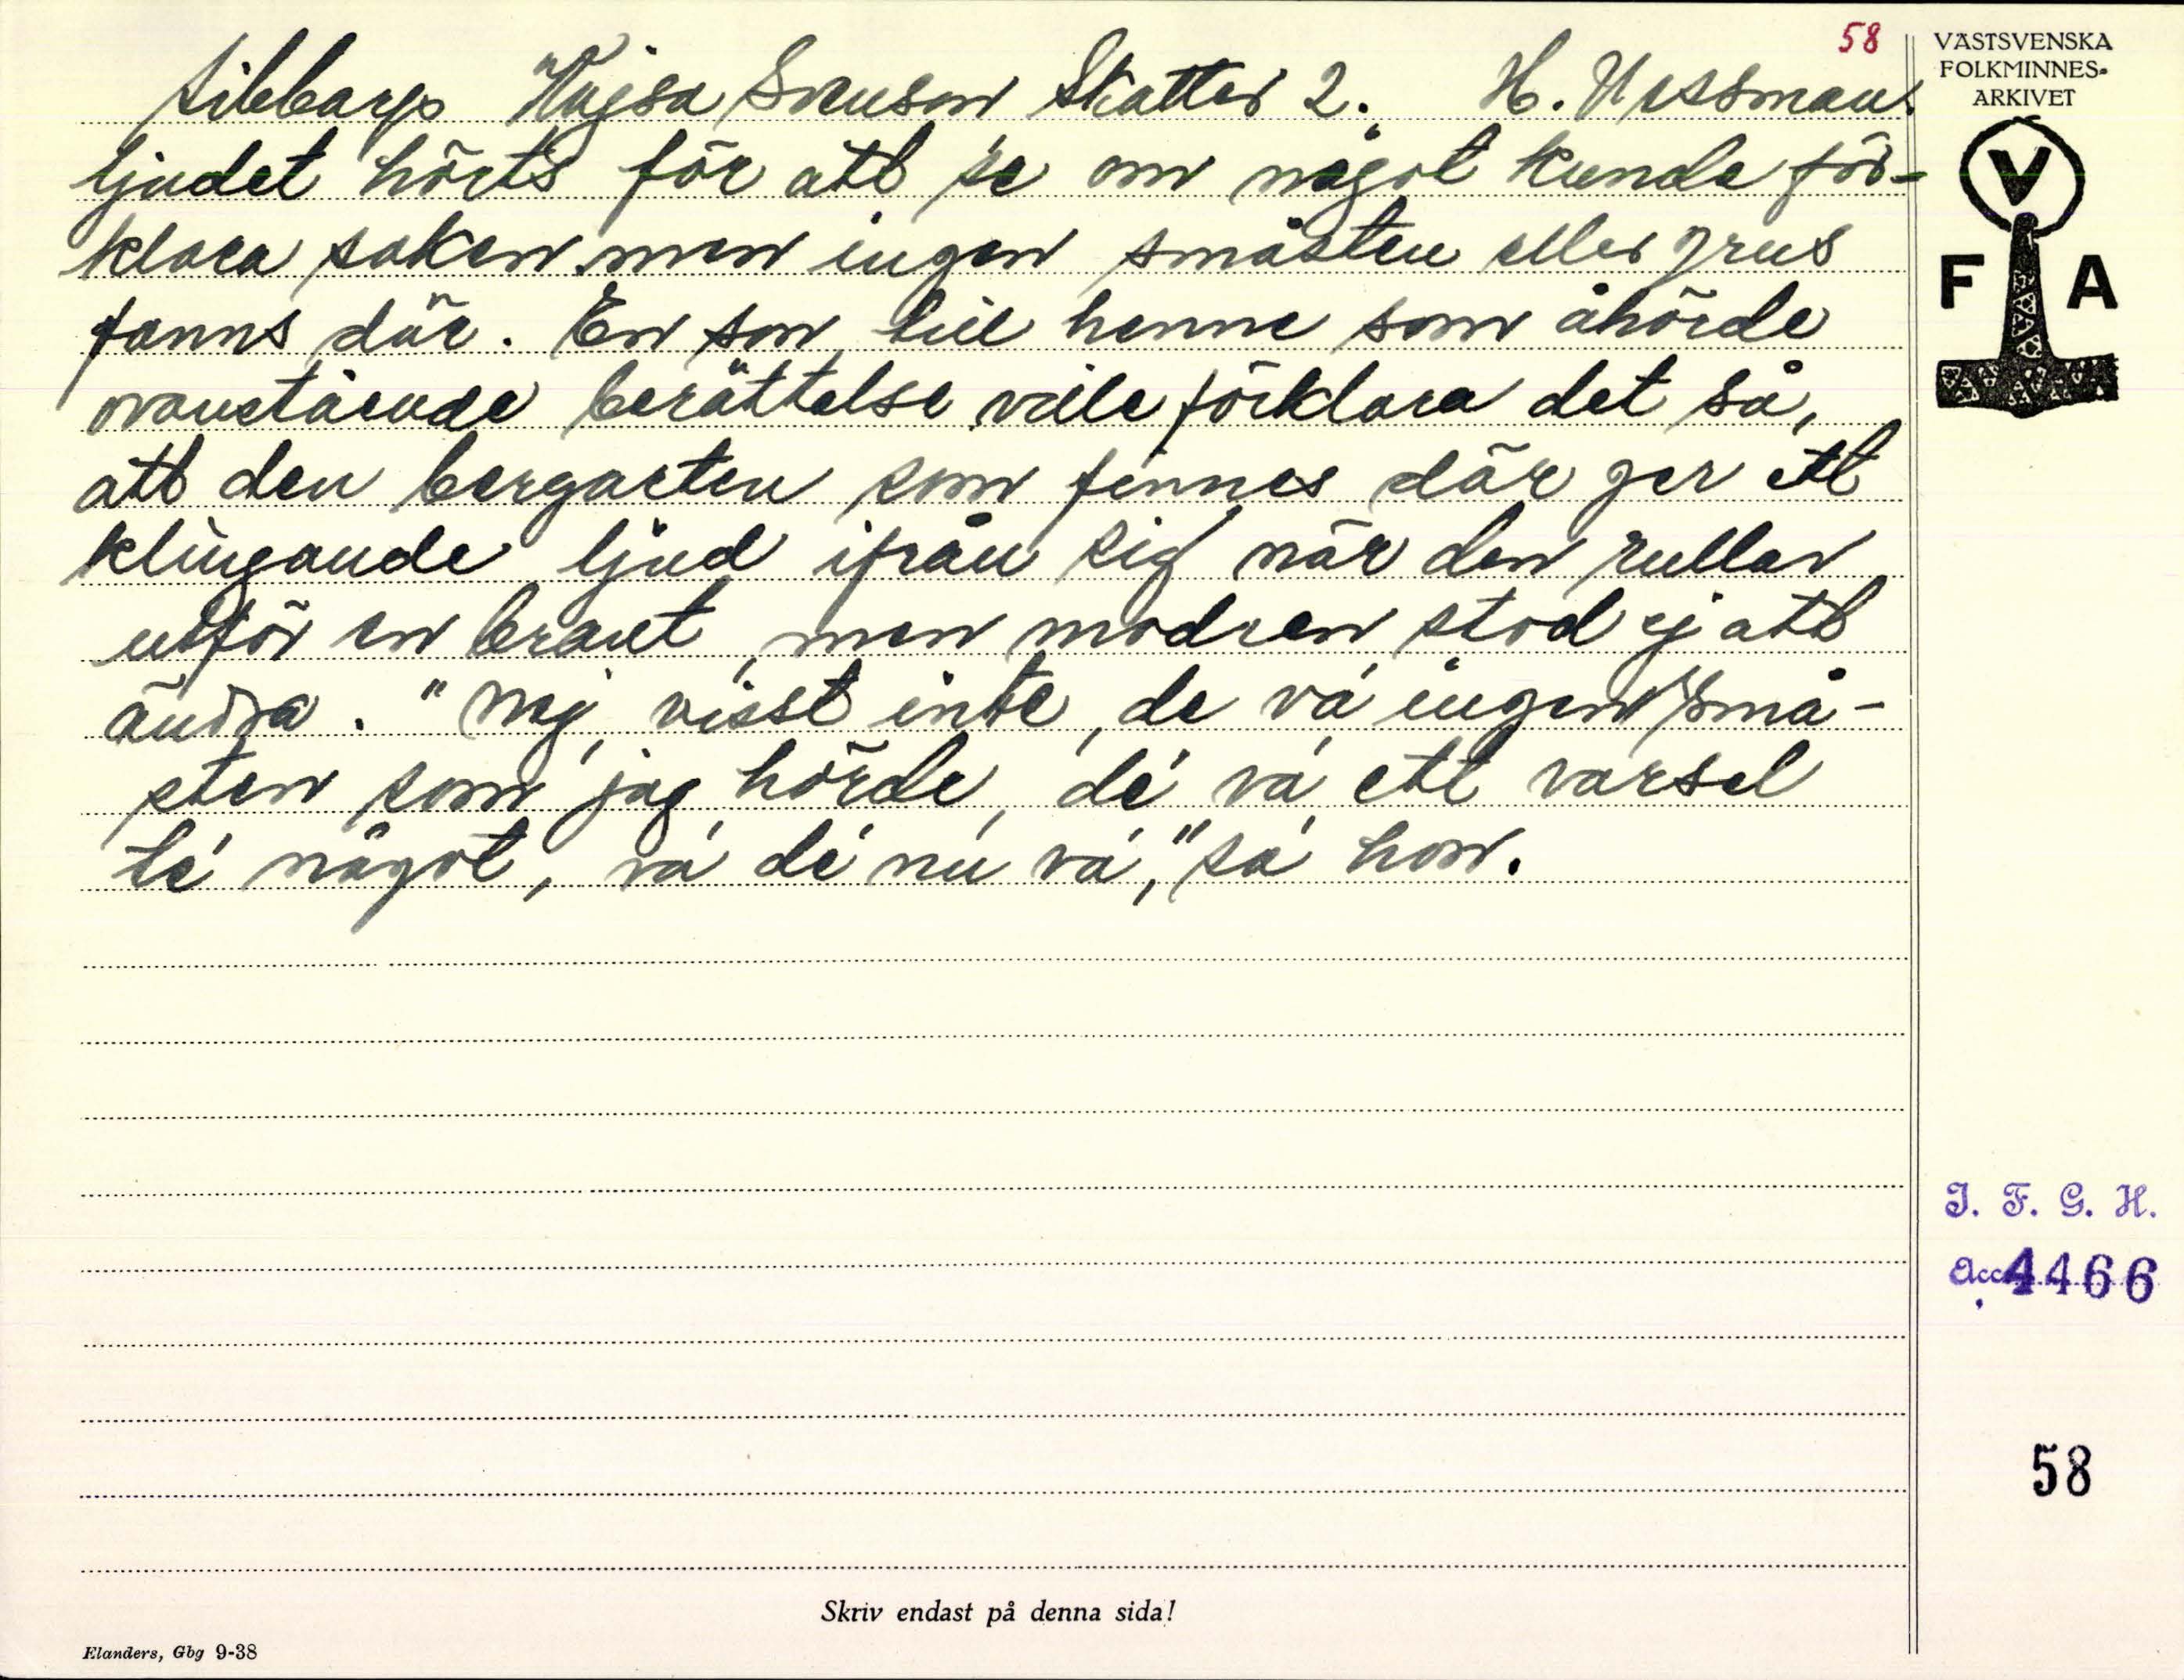 58
Sibbarp Kajsa Svenson Skatter 2. H. Wessman.
ljudet hörts för att se om något kunde för-
klara saken men ingen småsten eller grus
fanns där. En son till henne som åhörde
ovanstående berättelse ville förklara det så,
att den bergarten som finnes där ger ett
klingande ljud ifrån sig när den rullar
utför en brant, men modren stod ej att
ändra. "Nej, visst inte, de va' ingen små-
sten som jag hörde, de' va' ett varsel
te' något, va' de' nu va'," sa' hon.
VÄSTSVENSKA
FOLKMINNES-
ARKIVET
V
F A
I. F. G. H.
Acc. 4466
58
Skriv endast på denna sida!
Elanders, Gbg 9-38